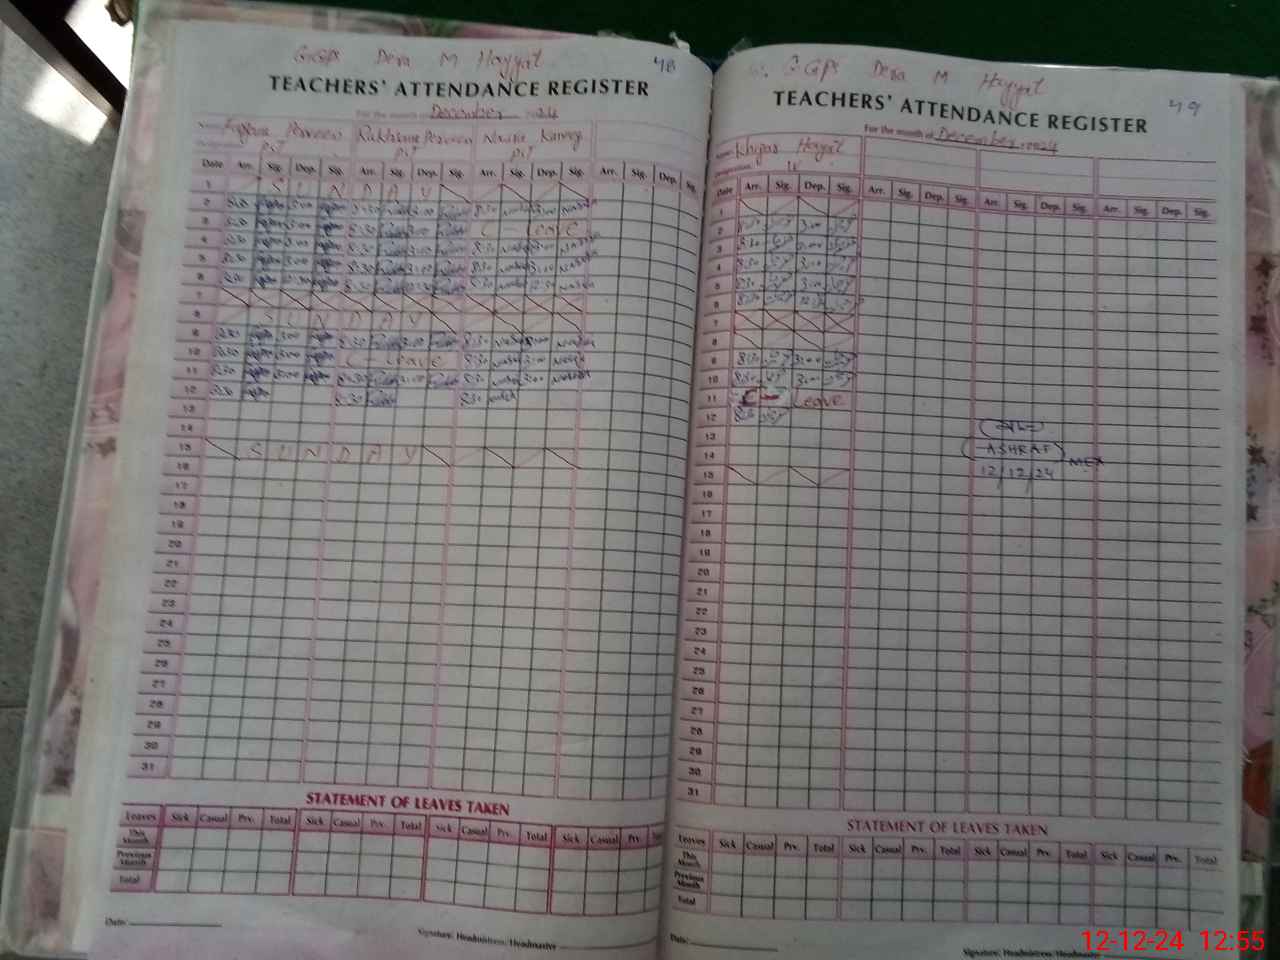 GGPS Dera M Hayyat 48
TEACHERS' ATTENDANCE REGISTER
For the month of December 2024
Perveen Rukhsana Perveen Kanwal
PST PST PST
Date Arr. Sig. Dep. Sig. Arr. Sig. Dep. Sig. Arr. Sig. Dep. Sig. Arr. Sig. Dep. Sig.
1 S U N D A Y
2 8:30 3:00 8:30 3:00 8:30 3:00
3 8:30 3:00 8:30 3:00 C - Leave
4 8:30 3:00 8:30 3:00 8:30 3:00
5 8:30 3:00 8:30 3:00 8:30 3:00
6 8:30 12:30 8:30 12:30 8:30 12:30
7
8 S U N D A Y
9 8:30 3:00 8:30 3:00 8:30 3:00
10 8:30 3:00 C - Leave 8:30 3:00
11 8:30 3:00 8:30 3:00 8:30 3:00
12 8:30 8:30 8:30
13
14
15 S U N D A Y
16
17
18
19
20
21
22
23
24
25
26
27
28
29
30
31
STATEMENT OF LEAVES TAKEN
Leaves Sick Casual Prv. Total Sick Casual Prv. Total Sick Casual Prv. Total Sick Casual Prv.
This Month
Previous Month
Total
Date:
Signature: Headmistress/Headmaster
GGPS Dera M Hayyat 49
TEACHERS' ATTENDANCE REGISTER
For the month of December 2024
Name: Khizar Hayat
Designation:
Date Arr. Sig. Dep. Sig. Arr. Sig. Dep. Sig. Arr. Sig. Dep. Sig. Arr. Sig. Dep. Sig.
1
2 8:30 3:00
3 8:30 3:00
4 8:30 3:00
5 8:30 3:00
6 8:30 12:30
7
8
9 8:30 3:00
10 8:30 3:00
11 C - Leave
12 8:30
13
14 ASHRAF MEA
15 12/12/24
16
17
18
19
20
21
22
23
24
25
26
27
28
29
30
31
STATEMENT OF LEAVES TAKEN
Leaves Sick Casual Prv. Total Sick Casual Prv. Total Sick Casual Prv. Total Sick Casual Prv. Total
This Month
Previous Month
Total
Date:
Signature: Headmistress/Headmaster
12-12-24 12:55